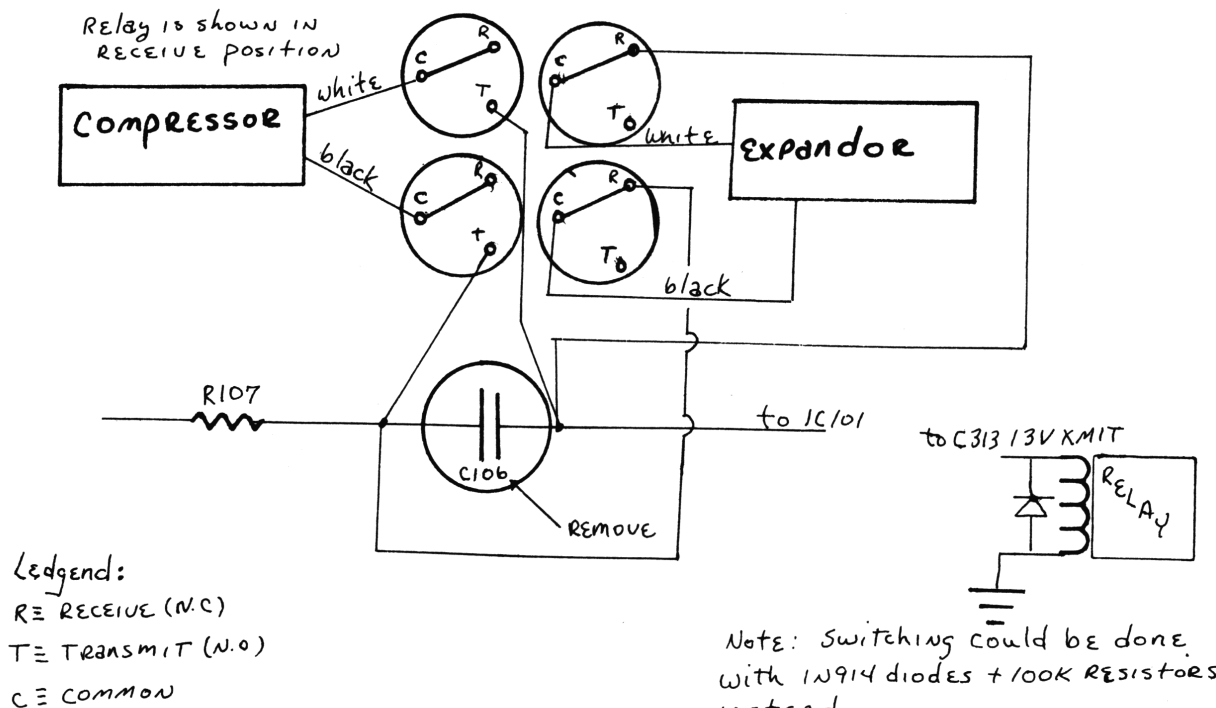 Relay is shown in
RECEIVE position
white
COMPRESSOR
black
C
R
T
C
R
T
C
R
T
white
EXPANDOR
C
R
T
black
R107
to IC101
C106
REMOVE
to C313 13V XMIT
RELAY
Ledgend:
R≡ RECEIVE (N.C)
T≡ TRansmiT (N.O)
C≡ COMMON
Note: Switching could be done
with 1N914 diodes + 100K RESISTORS